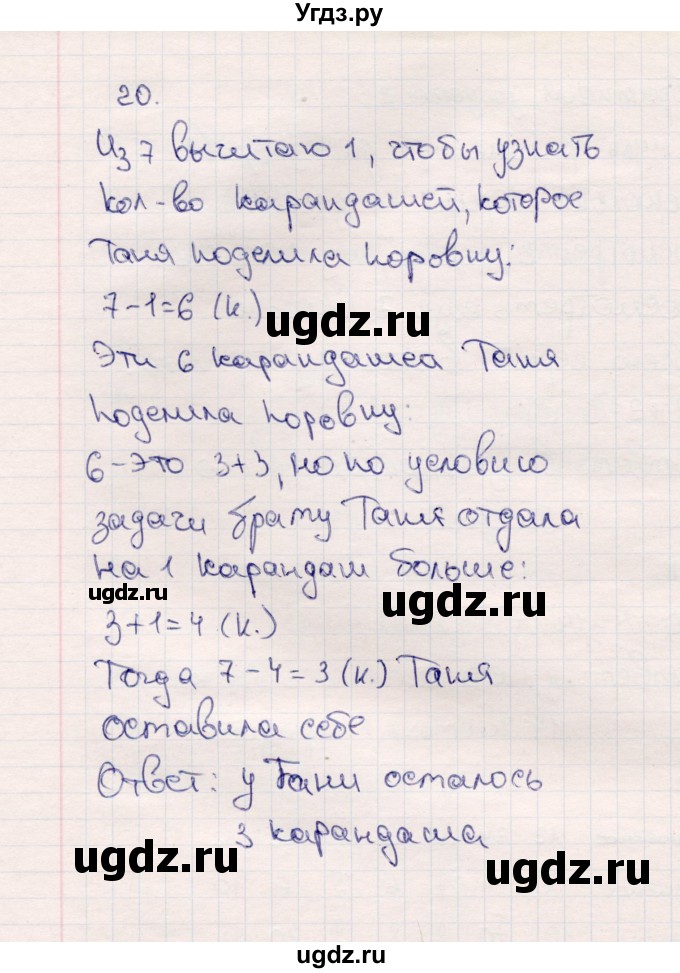 Угдз.ру
20.
Из 7 вычитаю 1, чтобы узнать
кол-во карандашей, которое
Таня поделила поровну:
7-1=6 (к.)
ugdz.ru
Эти 6 карандашеа Таня
поделила поровну:
6-это 3+3, но по условию
задачи брату Таня отдала
на 1 карандаш больше:
ugdz.ru
ugdz.ru
3+1=4 (к.)
Тогда 7-4=3 (к.) Таня
оставила себе
Ответ: у Тани осталось
3 карандаша
ugdz.ru
ugdz.ru
ugdz.ru